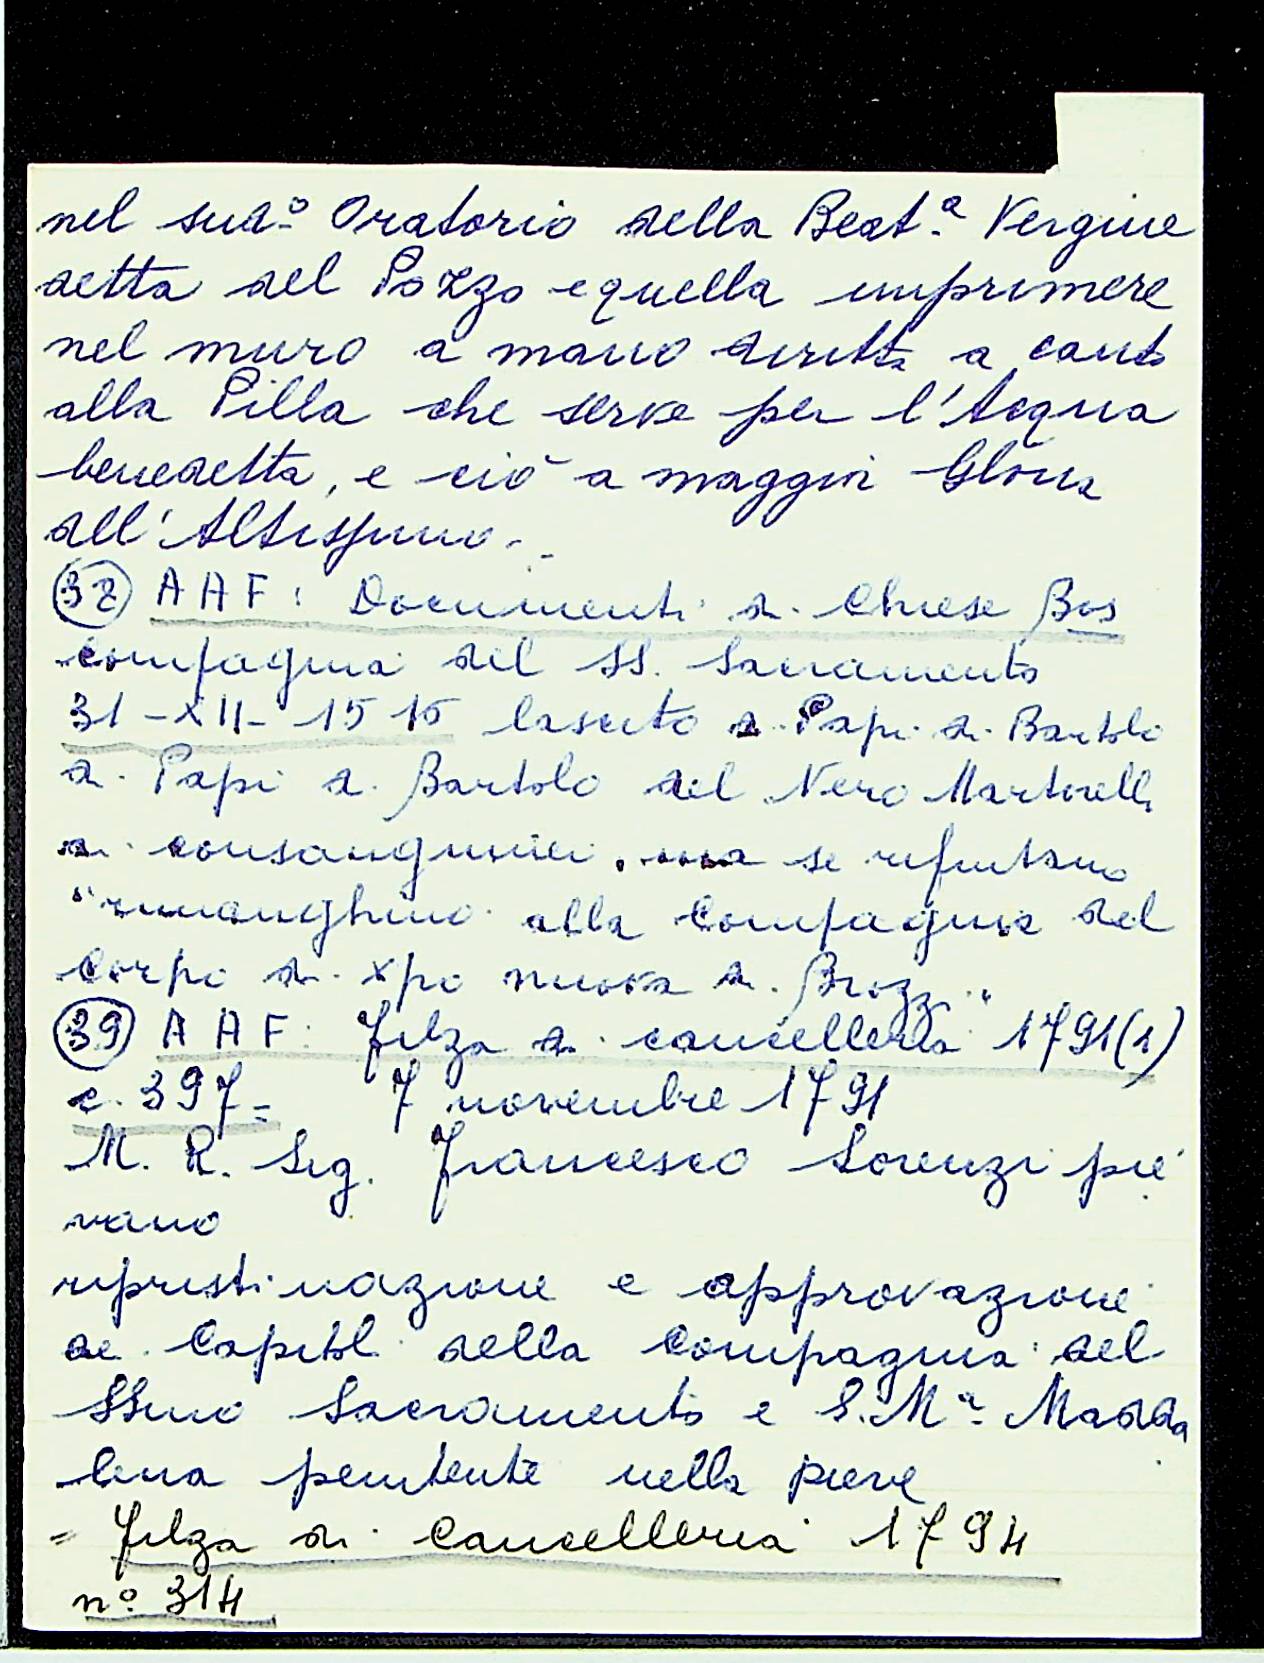 nel sud.º Oratorio della Beat.ª Vergine
detta del Pozzo e quella imprimere
nel muro a mano diritta a canto
alla Pilla che serve per l'Acqua
benedetta, e ciò a maggior Gloria
dell'Altissimo.
38 AAF: Documenti di Chiese Bos
compagnia del SS. Sacramento
31-XII-1515 lascito di Papi di Bartolo
di Papi di Bartolo del Nero Martinelli
ai consanguinei, ma se rifiutano
"rimanghino alla Compagnia del
Corpo di xpo nuova di Brozzi"
39 AAF: Filza di cancelleria 1791(2)
c. 397= 7 novembre 1791
M. R. Sig. Francesco Lorenzi pie
vano
ripristinazione e approvazione
de Capitoli della Compagnia del
SSmo Sacramento e S. Mª Madda
lena penitente nella pieve
= Filza di Cancelleria 1794
nº 314